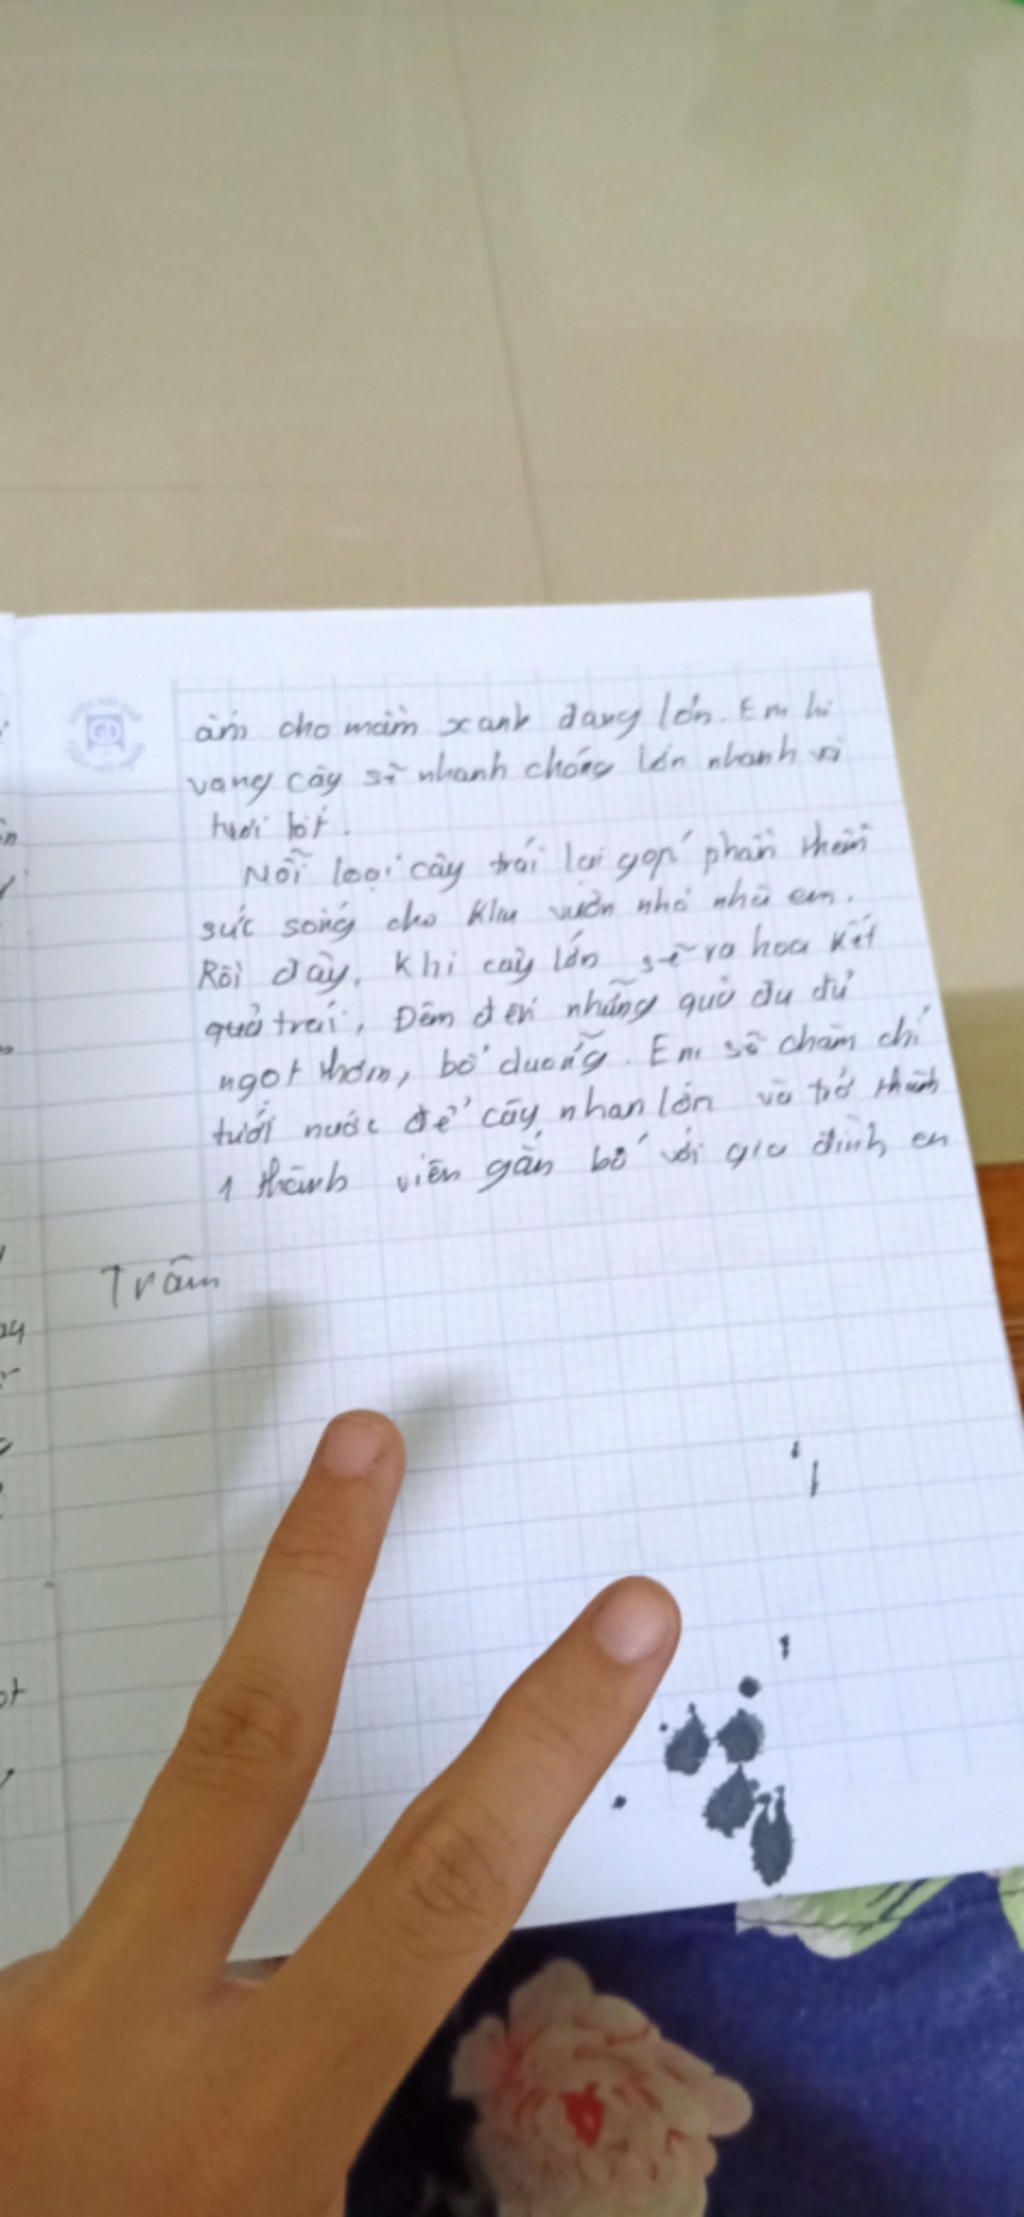 ấm cho mầm xanh đang lớn. Em hi
vọng cây sẽ nhanh chóng lớn nhanh và
tươi tốt.
Mỗi loại cây trái lại góp phần thêm
sức sống cho khu vườn nhỏ nhà em.
Rồi đây, khi cây lớn sẽ ra hoa kết
quả trái, Đêm đến những quả đu đủ
ngọt thơm, bổ dưỡng. Em sẽ chăm chỉ
tưới nước để cây nhan lớn và trở thành
1 thành viên gắn bó với gia đình em
Trâm